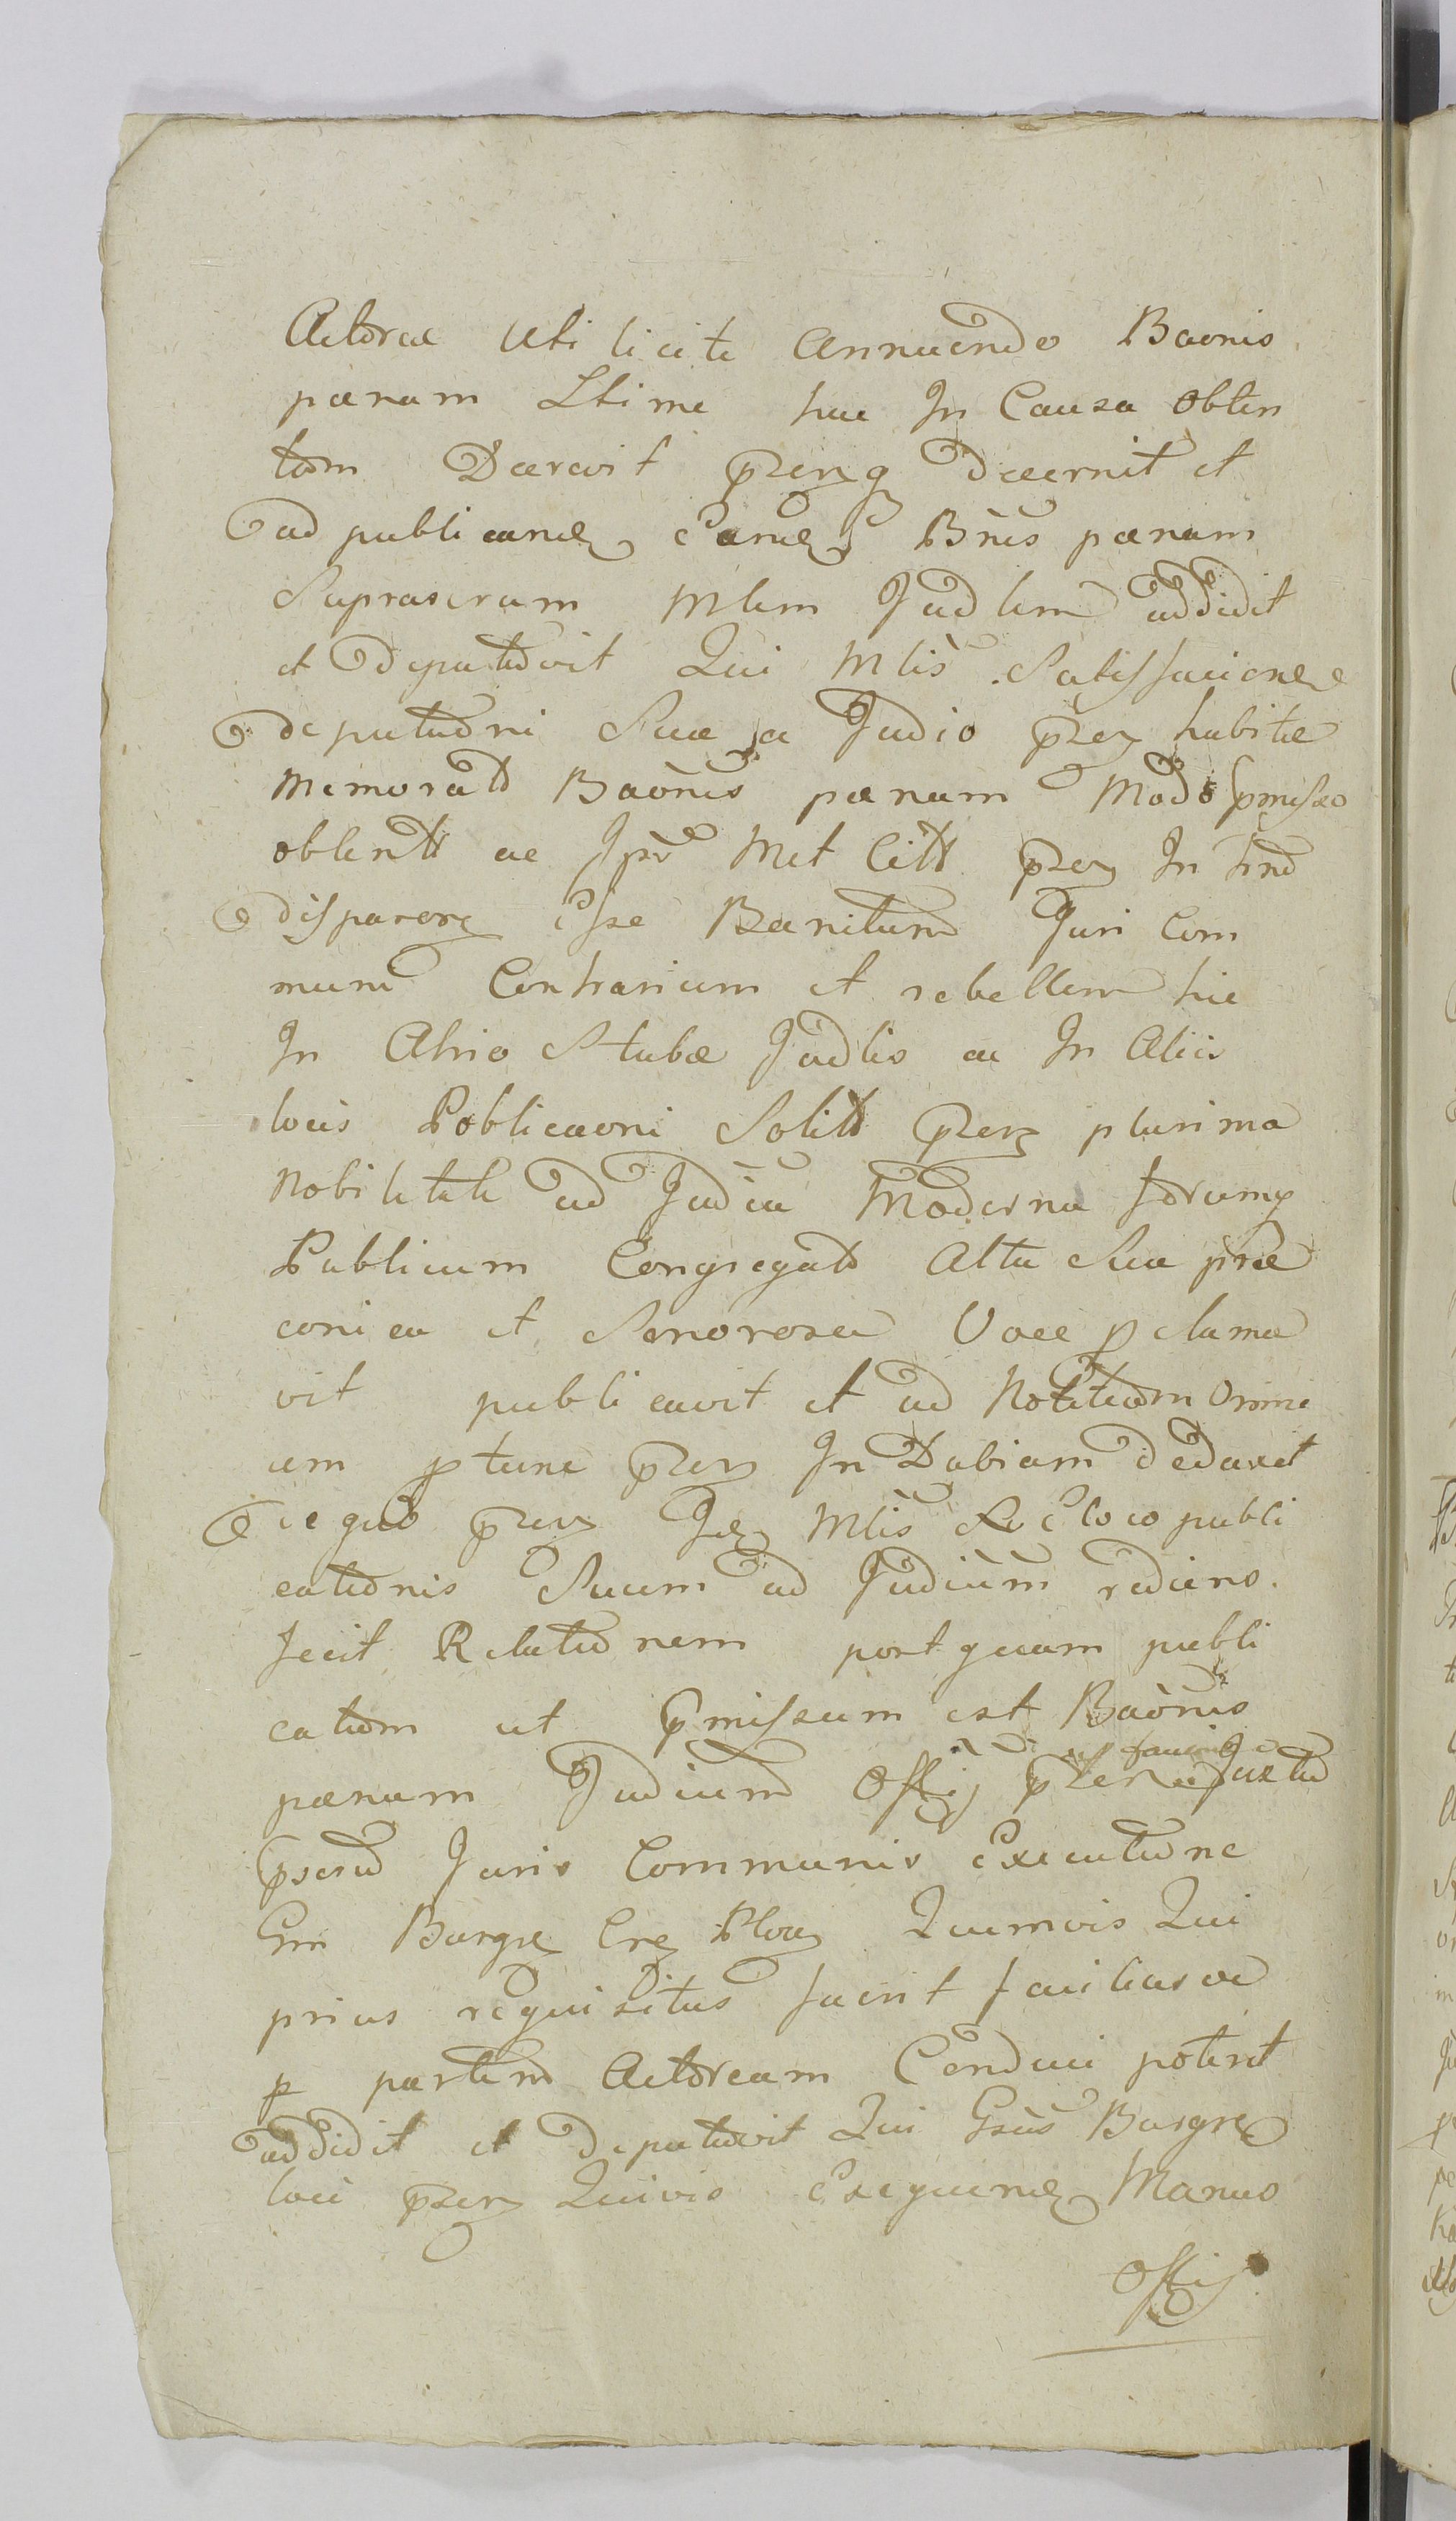 Actoreæ Uti licite Annuendo Baonis
pænam Ltime hac In Causa obten
tam Decrevit pzenq decernit et
ad publicand eand Bnis pænam
Suprascrum Mlem Judlem addidit
et deputavit Qui Mlis Satisfaciend
deputaoni Suæ a Judio pzen habitæ
Memorat Baonis pænam Modo pmisso
obtent ac Ipm Met Citt pzen In Tno
disparen Esse Banitum Juri Com
muni Contrarium et rebellem hic
In Atrio Stubæ Judlis ac In Aliis
locis Publicaoni Solitt pzen plurima
Nobilitate ad Judia Moderna forumq
Publicum Congregata Alta Sua præ
conica et Sonorosa Voce pclama
vit publicavit et ad Notitiam omni
um ptunc pzen In Dubiam deduxit
ie quo pzen Id Mlis de Eo loco publi
cationis Suum ad Judium rediens
fecit Relationem post quam publi
catam ut pmissum est Baonis
pænam Judium Offii pzens faciend Juxta
pscrta Juris Communis Executione
Gm Burgr Cre Ploc Quemvis Qui
prius requisitus fuerit facilius ve
p partem Actoream Conduci poterit
addidit et deputavit Qui Gsus Burgr
loci pzen Quivis Exequend Manus
Offii